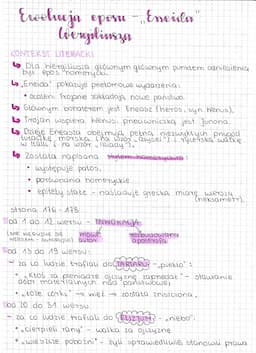 Ewolucja eposu - „Eneida"
Wergiliusza
KONTEKST LITERACKI
Dla Wergiliusza głównym głównym punktem odniesienia
był epos homerycki.
„Eneida" pokazuje przełomowe wydarzenia:
• ocaleni Trojanie zakładają nowe państwo.
Głównym bohaterem jest Eneasz (heros, syn Wenus).
Trojan wspiera Wenus, przeciwniczką jest Junona.
Dzieje Eneasza obejmują pełną niezwykłych przygód
tułaczkę morską (na wzór „Odysei") i rycerską walkę
w Italii (na wzór „Iliady").
Została napisana
• występuje patos,
• porównania homeryckie
• epitety stałe - naśladuje grecką miarę wierszy
(heksametr).
strona 176 - 178:
Od 1 do 12 wersu - INWOKACJA
rozbudowana
apostrofa
Od 13 do 19 wersu:
- za co ludzie trafiali do TARTARU - „piekło":
• „ktoś za pieniądze ojczyznę zaprzedał" - stawianie
dóbr materialnych nad państwowe,
• „córki" → została zniszczona,
Od 20 do 31 wersu
- za co ludzie trafiali do ELIZJUM - „niebo":
• „cierpieli rany" - walka za ojczyznę
• „wieszcze pobożni" - byli sprawiedliwie, stanowili prawa